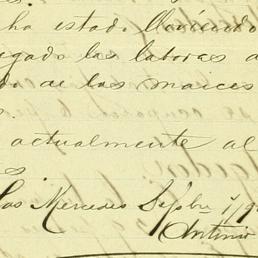 ha estado lloviendo
egado las labores a
do de las maices
s
actualmente al
s.
Las Mercedes Sepbre 7/9
Antonio